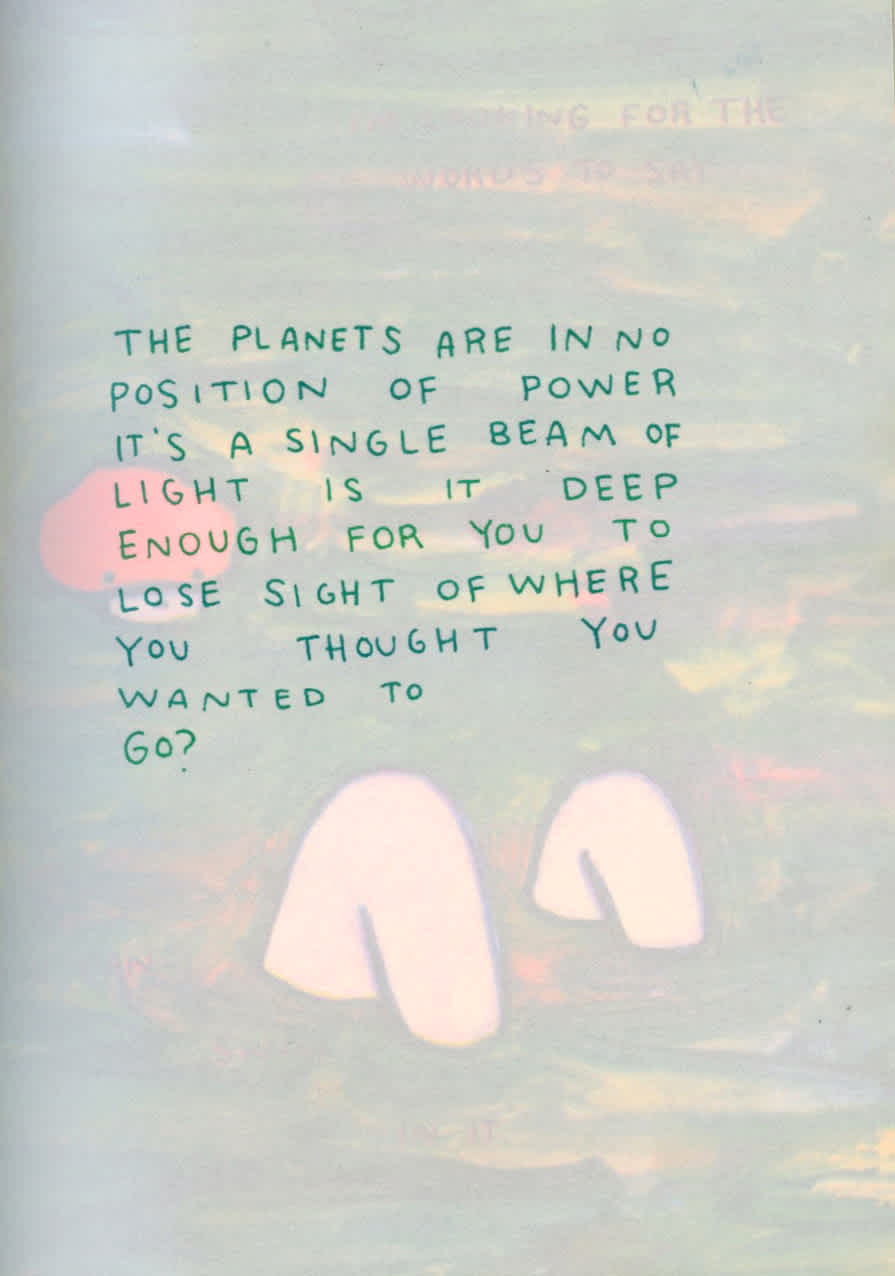 FOR THE
WORDS TO SAY
THE PLANETS ARE IN NO
POSITION OF POWER
IT'S A SINGLE BEAM OF
LIGHT IS IT DEEP
ENOUGH FOR YOU TO
LOSE SIGHT OF WHERE
YOU THOUGHT YOU
WANTED TO
GO?